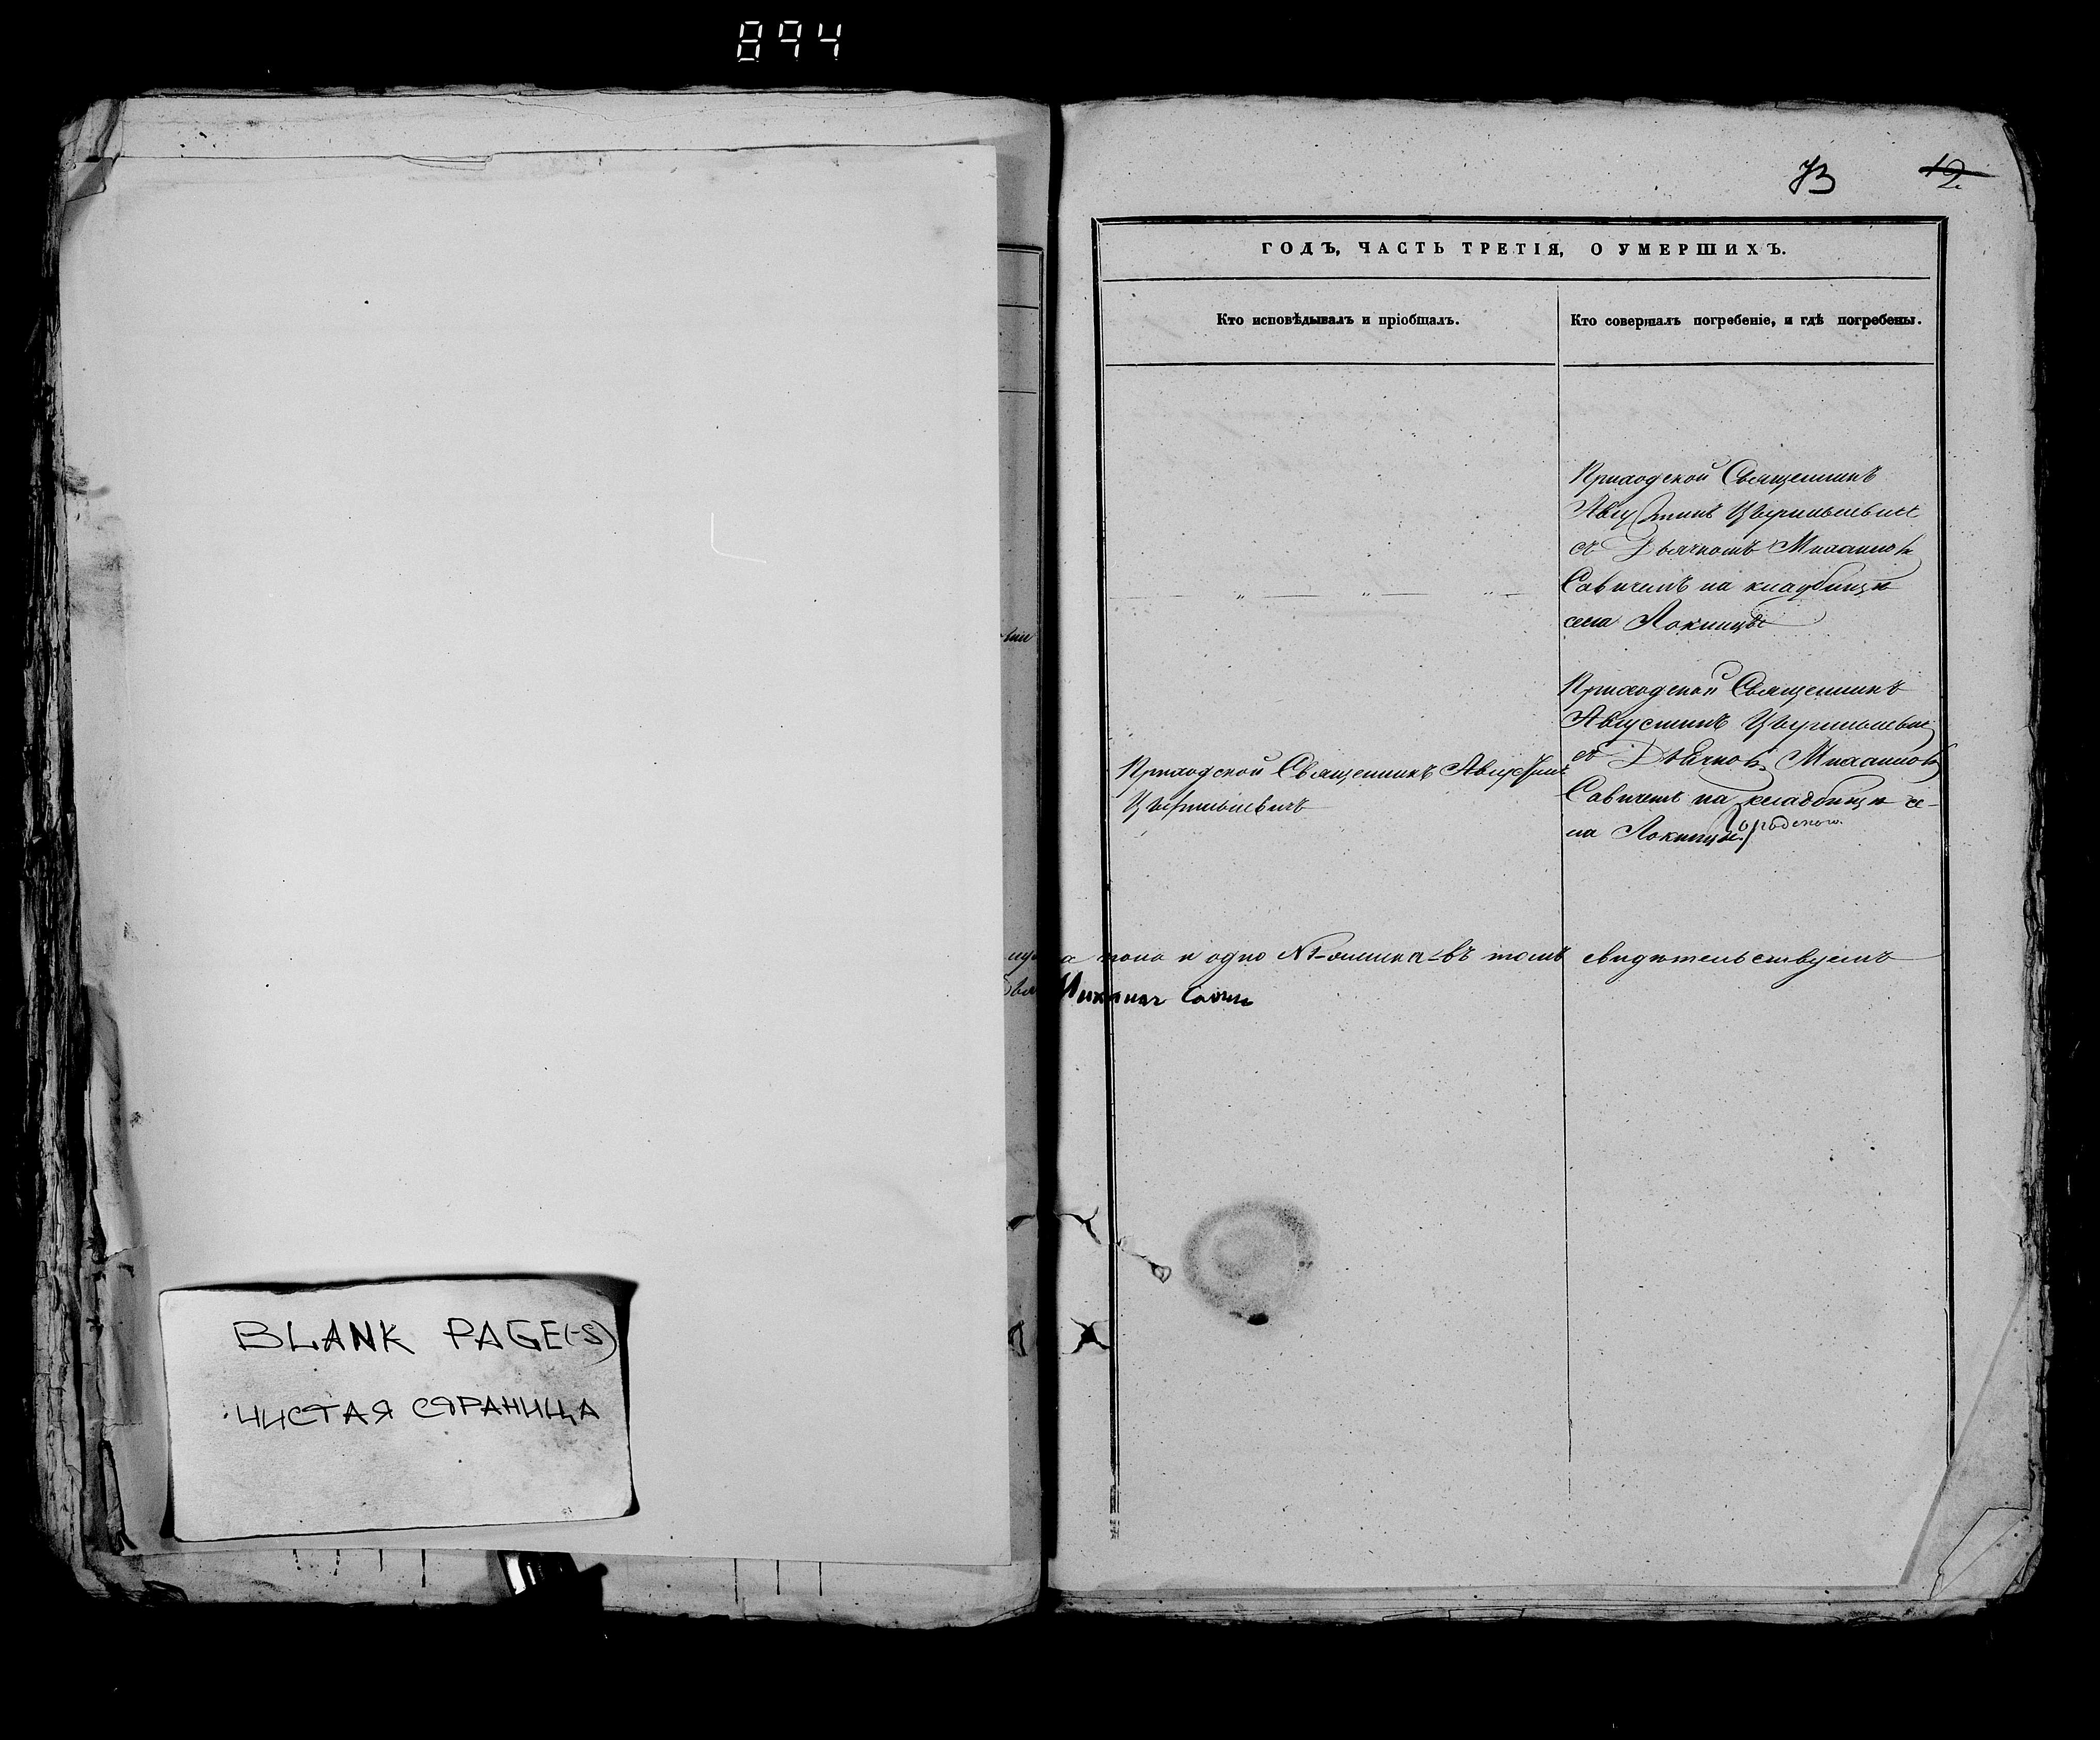 894
73 12
ГОДЪ, ЧАСТЬ ТРЕТІЯ, О УМЕРШИХЪ.
Кто исповѣдывалъ и пріобщалъ.
Кто совершалъ погребеніе, и гдѣ погребены.
Приходской Священникъ
Августинъ
съ Дьячкомъ Михаиломъ
Савичемъ на кладбищѣ
села Локницы
Приходской Священникъ Августинъ
Приходской Священникъ
Августинъ
съ Дьячкомъ Михаиломъ
Савичемъ на кладбищѣ се-
ла Локницы
пола и одно въ томъ свидѣтельствуемъ
Михаилъ Савич
BLANK PAGE(-S)
ЧИСТАЯ СТРАНИЦА